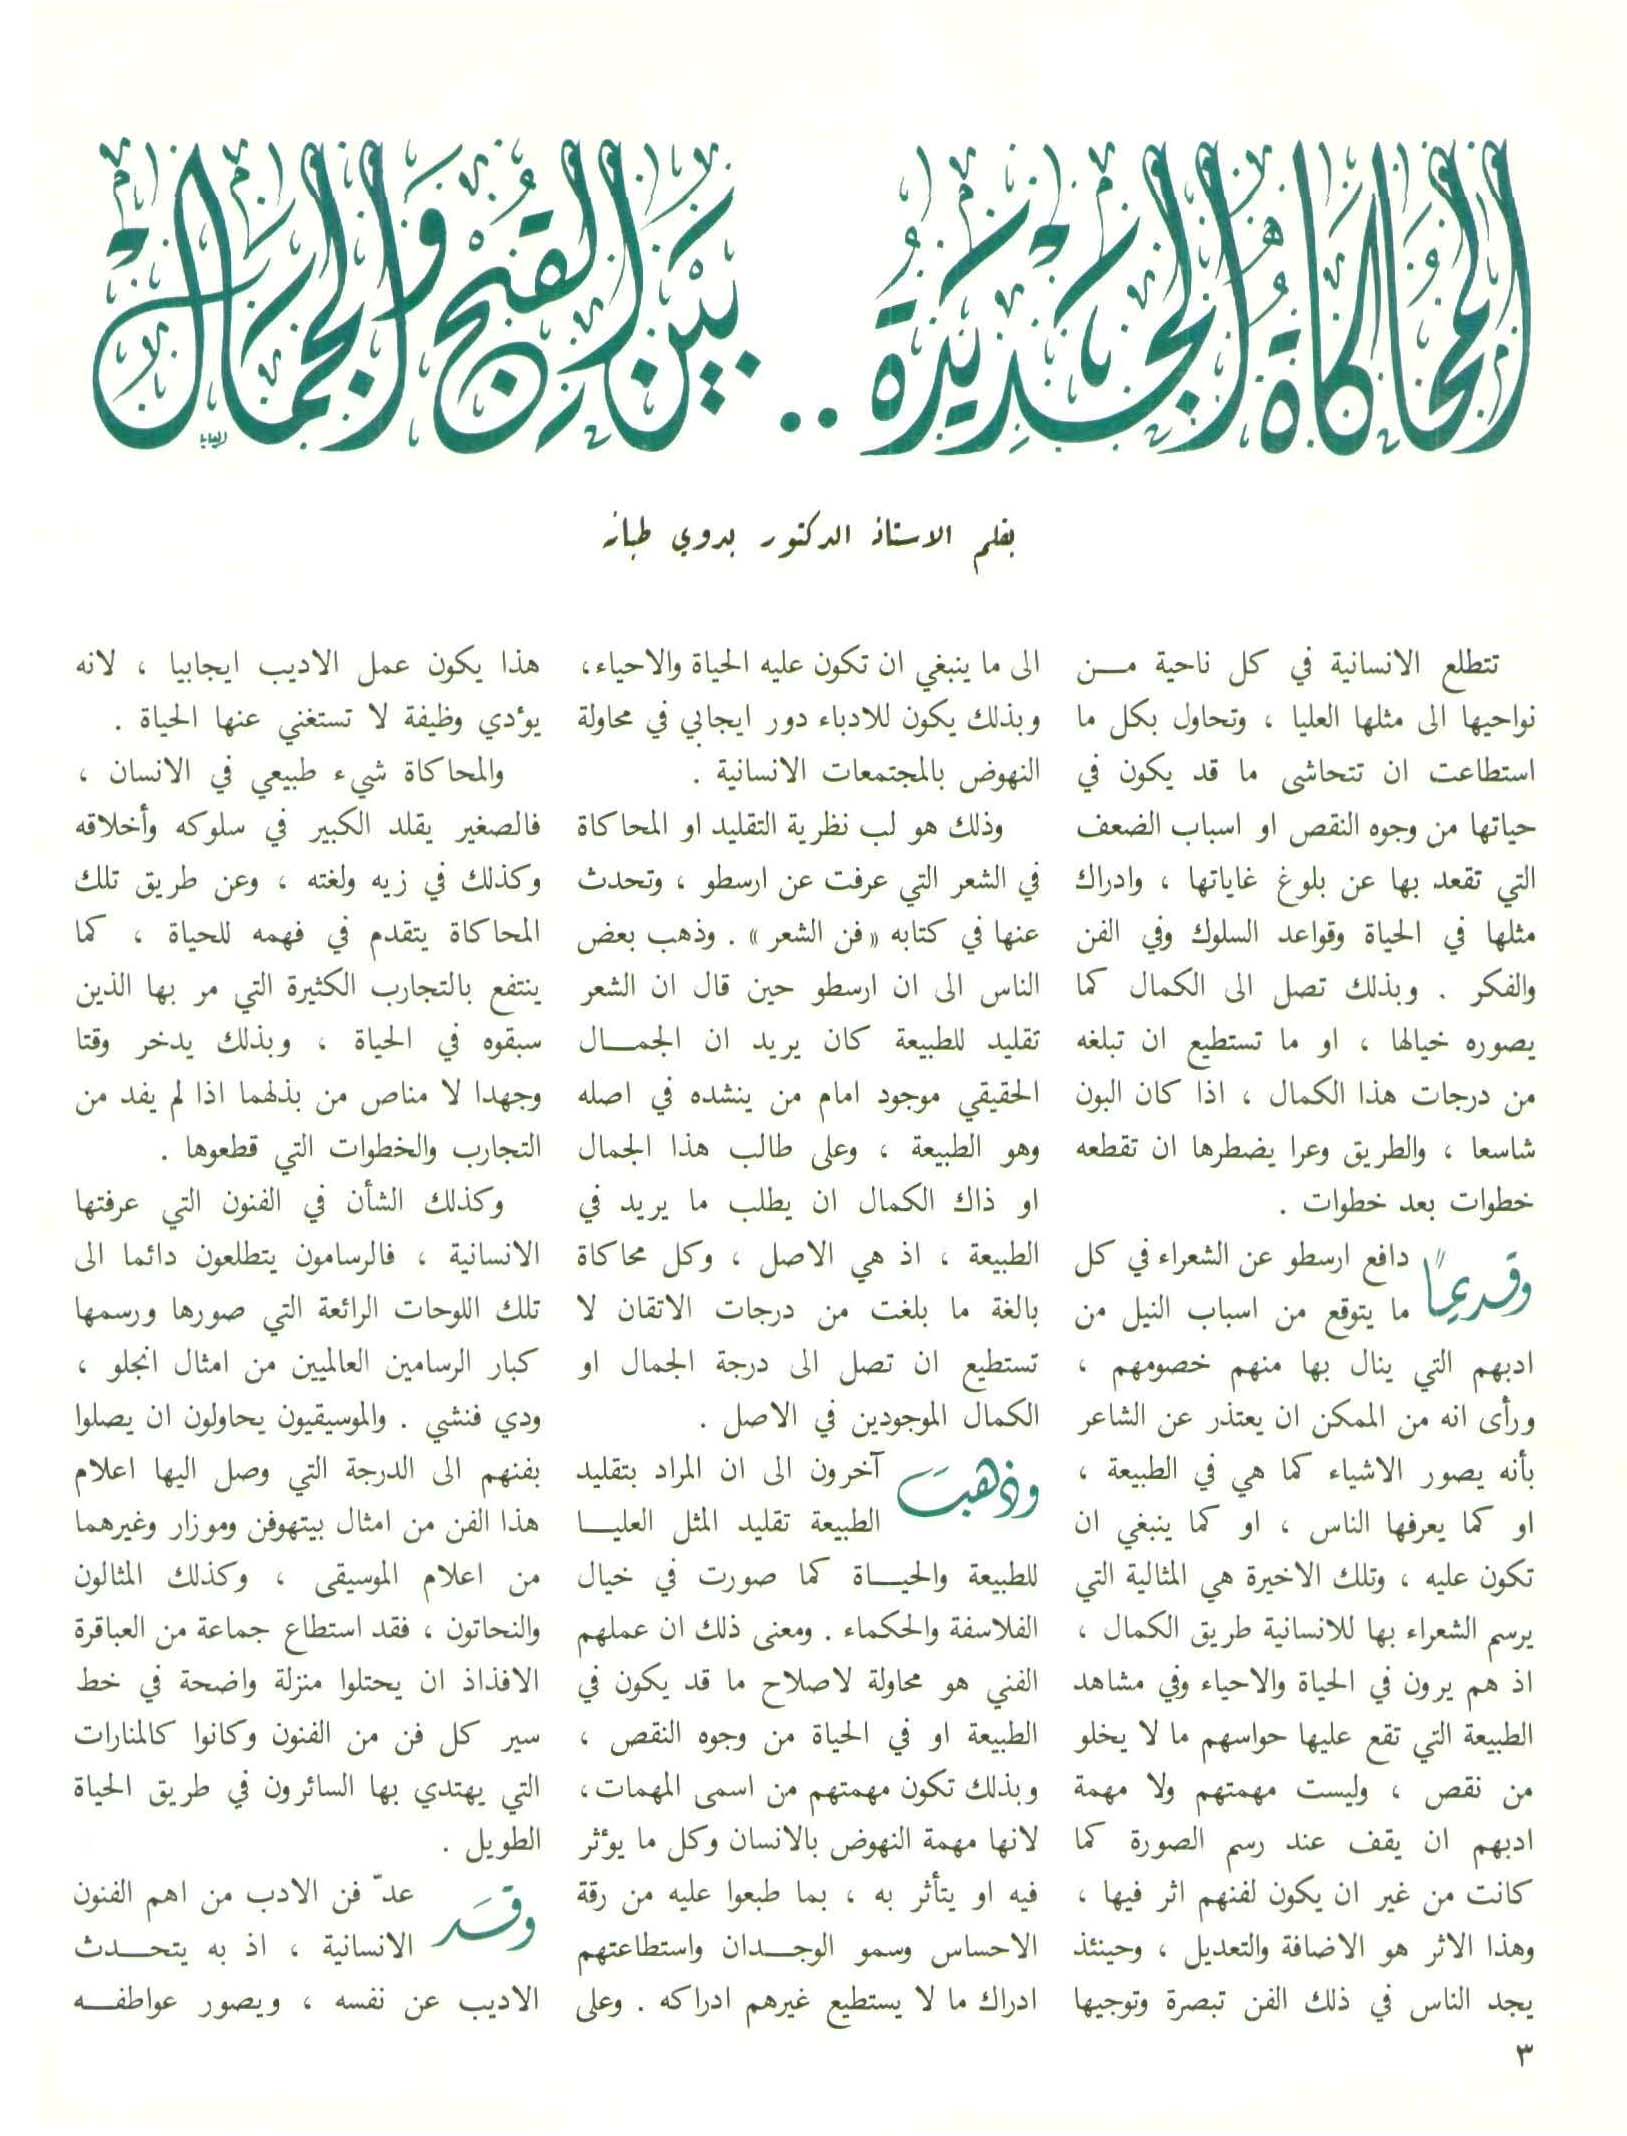 المحاكاة الجديدة .. بين القبح والجمال
بقلم الاستاذ الدكتور بدوي طبانه
تتطلع الانسانية في كل ناحية مـــن
نواحيها الى مثلها العليا ، وتحاول بكل ما
استطاعت ان تتحاشى ما قد يكون في
حياتها من وجوه النقص او اسباب الضعف
التي تقعد بها عن بلوغ غاياتها ، وادراك
مثلها في الحياة وقواعد السلوك وفي الفن
والفكر . وبذلك تصل الى الكمال كما
يصوره خيالها ، او ما تستطيع ان تبلغه
من درجات هذا الكمال ، اذا كان البون
شاسعا ، والطريق وعرا يضطرها ان تقطعه
خطوات بعد خطوات .
وقديمًا دافع ارسطو عن الشعراء في كل
ما يتوقع من اسباب النيل من
ادبهم التي ينال بها منهم خصومهم ،
ورأى انه من الممكن ان يعتذر عن الشاعر
بأنه يصور الاشياء كما هي في الطبيعة ،
او كما يعرفها الناس ، او كما ينبغي ان
تكون عليه ، وتلك الاخيرة هي المثالية التي
يرسم الشعراء بها للانسانية طريق الكمال ،
اذ هم يرون في الحياة والاحياء وفي مشاهد
الطبيعة التي تقع عليها حواسهم ما لا يخلو
من نقص ، وليست مهمتهم ولا مهمة
ادبهم ان يقف عند رسم الصورة كما
كانت من غير ان يكون لفنهم اثر فيها ،
وهذا الاثر هو الاضافة والتعديل ، وحينئذ
يجد الناس في ذلك الفن تبصرة وتوجيها
الى ما ينبغي ان تكون عليه الحياة والاحياء،
وبذلك يكون للادباء دور ايجابي في محاولة
النهوض بالمجتمعات الانسانية .
وذلك هو لب نظرية التقليد او المحاكاة
في الشعر التي عرفت عن ارسطو ، وتحدث
عنها في كتابه «فن الشعر» . وذهب بعض
الناس الى ان ارسطو حين قال ان الشعر
تقليد للطبيعة كان يريد ان الجمـــال
الحقيقي موجود امام من ينشده في اصله
وهو الطبيعة ، وعلى طالب هذا الجمال
او ذاك الكمال ان يطلب ما يريد في
الطبيعة ، اذ هي الاصل ، وكل محاكاة
بالغة ما بلغت من درجات الاتقان لا
تستطيع ان تصل الى درجة الجمال او
الكمال الموجودين في الاصل .
وذهبَ آخرون الى ان المراد بتقليد
الطبيعة تقليد المثل العليـــا
للطبيعة والحيـــاة كما صورت في خيال
الفلاسفة والحكماء . ومعنى ذلك ان عملهم
الفني هو محاولة لاصلاح ما قد يكون في
الطبيعة او في الحياة من وجوه النقص ،
وبذلك تكون مهمتهم من اسمى المهمات،
لانها مهمة النهوض بالانسان وكل ما يؤثر
فيه او يتأثر به ، بما طبعوا عليه من رقة
الاحساس وسمو الوجـــدان واستطاعتهم
ادراك ما لا يستطيع غيرهم ادراكه . وعلى
هذا يكون عمل الاديب ايجابيا ، لانه
يؤدي وظيفة لا تستغني عنها الحياة .
والمحاكاة شيء طبيعي في الانسان ،
فالصغير يقلد الكبير في سلوكه وأخلاقه
وكذلك في زيه ولغته ، وعن طريق تلك
المحاكاة يتقدم في فهمه للحياة ، كما
ينتفع بالتجارب الكثيرة التي مر بها الذين
سبقوه في الحياة ، وبذلك يدخر وقتا
وجهدا لا مناص من بذلهما اذا لم يفد من
التجارب والخطوات التي قطعوها .
وكذلك الشأن في الفنون التي عرفتها
الانسانية ، فالرسامون يتطلعون دائما الى
تلك اللوحات الرائعة التي صورها ورسمها
كبار الرسامين العالميين من امثال انجلو ،
ودي فنشي . والموسيقيون يحاولون ان يصلوا
بفنهم الى الدرجة التي وصل اليها اعلام
هذا الفن من امثال بيتهوفن وموزار وغيرهما
من اعلام الموسيقى ، وكذلك المثالون
والنحاتون ، فقد استطاع جماعة من العباقرة
الافذاذ ان يحتلوا منزلة واضحة في خط
سير كل فن من الفنون وكانوا كالمنارات
التي يهتدي بها السائرون في طريق الحياة
الطويل .
وقَد عدّ فن الادب من اهم الفنون
الانسانية ، اذ به يتحـــدث
الاديب عن نفسه ، ويصور عواطفـــه
٣